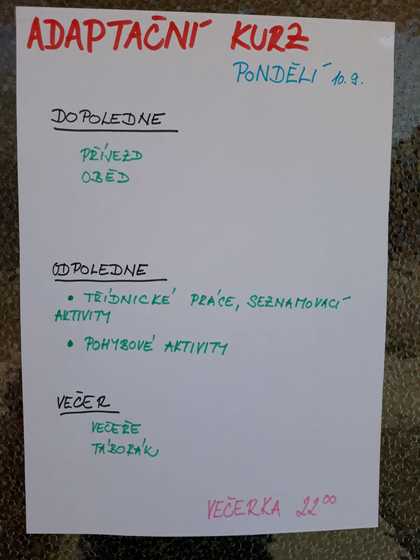 ADAPTAČNÍ KURZ
PONDĚLÍ 10.9.
DOPOLEDNE
PŘÍJEZD
OBĚD
ODPOLEDNE
• TŘÍDNICKÉ PRÁCE, SEZNAMOVACÍ
AKTIVITY
• POHYBOVÉ AKTIVITY
VEČER
VEČEŘE
TÁBORÁK
VEČERKA 22⁰⁰